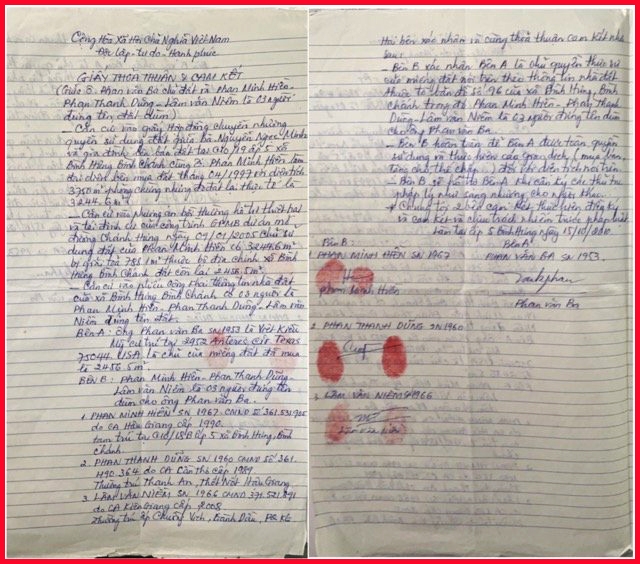 Cộng Hòa Xã Hội Chủ Nghĩa Việt Nam
Độc lập - tự do - Hạnh phúc
GIẤY THOẢ THUẬN & CAM KẾT
(Giữa ô. Phan văn Ba chủ đất và Phan Minh Hiền -
Phan Thanh Dũng - Lâm văn Niềm là 03 người
đứng tên đất dùm)
- Căn cứ vào giấy Hợp đồng chuyển nhường
quyền sử dụng đất giữa bà Nguyễn Ngọc Minh
và gia đình bên bán đất tại ấp 5 xã
Bình Hưng Bình Chánh cùng ô. Phan Minh Hiền làm
đại diện bên mua đất tháng 04/1997 với diện tích
3750m² nhưng đo đạt lại thực tế là
3244.6m²
- Căn cứ vào bồi thường hỗ trợ thiệt hại
và tái định cư của công trình GPMB dự án mở
đường Chánh Hưng ngày 09/01/2005 chủ sử
dụng đất của Phan Minh Hiền có 3244.6m²
bị giải toả 788.1m² thuộc bộ địa chính xã Bình
Hưng Bình Chánh đất còn lại 2456.5m².
- Căn cứ vào phiếu công khai thông tin nhà đất
của xã Bình Hưng Bình Chánh có 03 người là
Phan Minh Hiền - Phan Thanh Dũng - Lâm văn
Niềm đứng tên đất.
BÊN A: ông Phan văn Ba SN 1953 là Việt Kiều
Mỹ cư trú tại 2952 Antares Cir Texas
75044. USA. là chủ của miếng đất đã mua
là 2456.5m².
BÊN B: Phan Minh Hiền - Phan Thanh Dũng -
Lâm văn Niềm là 03 người đứng tên
dùm cho ông Phan văn Ba.
1. PHAN MINH HIỀN SN 1967 CMND Số 361.531.905
do CA Hậu Giang cấp 1990.
tạm trú tại ấp 5 xã Bình Hưng, Bình
Chánh.
2. PHAN THANH DŨNG SN 1960 CMND số 361.
490.364 do CA Cần thơ cấp 1989.
Thường trú Thạnh An, Thốt Nốt Hậu Giang
3. LÂM VĂN NIỀM SN 1966 CMND 371.521.891
do CA Kiên Giang cấp 2008
Thường trú ấp
Hai bên xác nhận và cùng thoả thuận cam kết như
sau:
- Bên B xác nhận Bên A là chủ quyền thực sự
của miếng đất nói trên theo thông tin nhà đất
thuộc tờ bản đồ số 96 của xã Bình Hưng, Bình
Chánh trong đó Phan Minh Hiền - Phan Thanh
Dũng - Lâm văn Niềm là 03 người đứng tên dùm
cho ông Phan văn Ba.
- Bên B hoàn toàn để Bên A được toàn quyền
sử dụng và thực hiện các giao dịch (mua bán,
tặng cho thế chấp..) đối với diện tích nói trên
- Bên B sẽ hỗ trợ Bên A khi cần ký các thủ tục
pháp lý như sang nhượng cho người khác.
Chúng tôi 2 bên cam kết thực hiện đúng
và cam kết và chịu trách nhiệm trước pháp luật.
Làm tại ấp 5 Bình Hưng ngày 15/10/2010.
BÊN B: BÊN A:
PHAN MINH HIỀN SN 1967 PHAN VĂN BA SN 1953
Phan Minh Hiền
Phan văn Ba
2 PHAN THANH DŨNG SN 1960
3. LÂM VĂN NIỀM SN 1966
Lâm văn Niềm